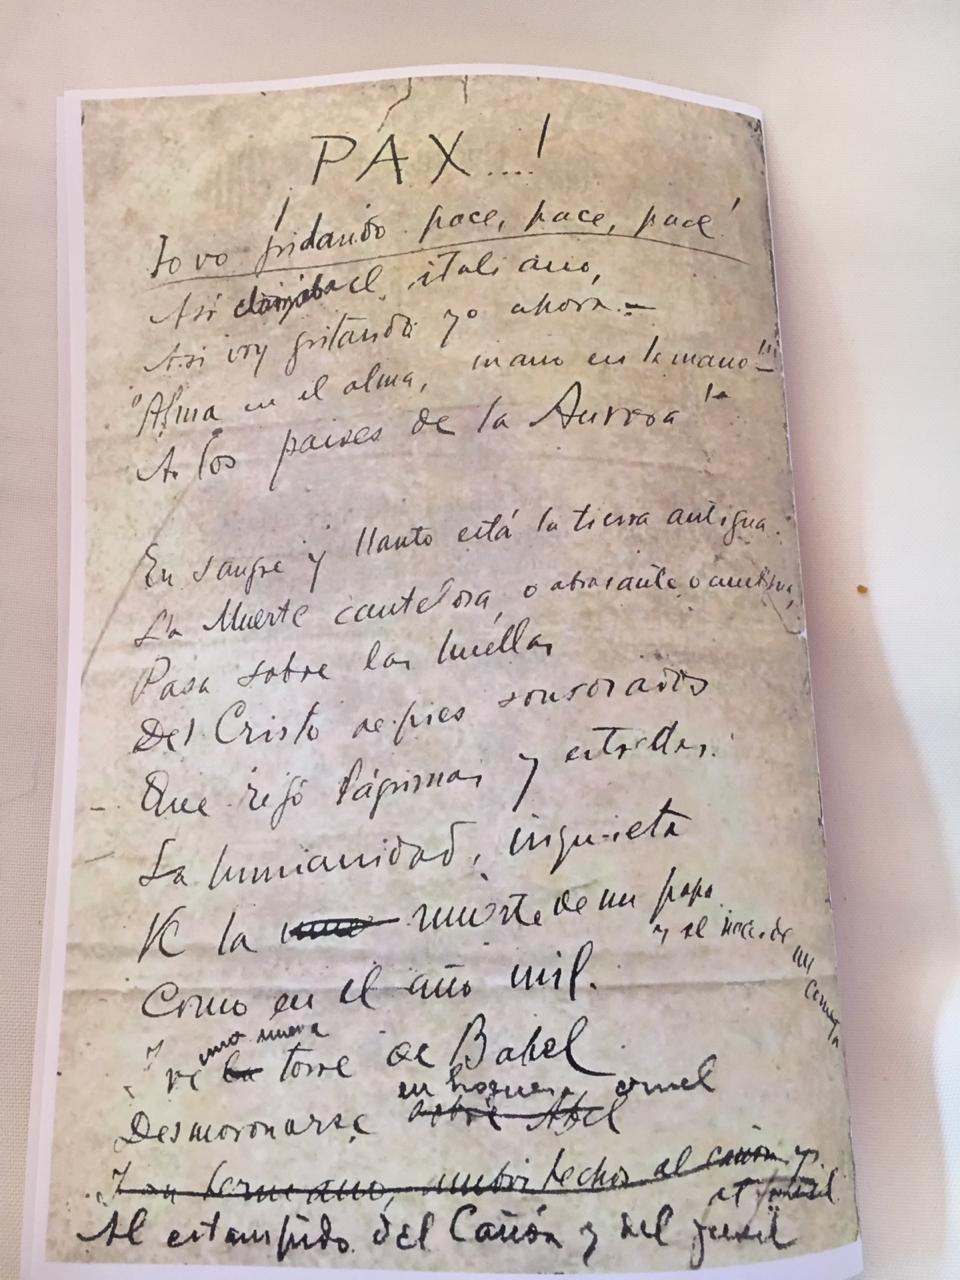 PAX....!
Io vo gridando pace, pace, pace!
Así clamaba el italiano,
Así voy gritando yo ahora.—
"Alma en el alma, mano en la mano"
A los paises de la Aurora
En sangre y llanto está la tierra antigua.
La Muerte cautelosa, o abrasante, o ambigua,
Pasa sobre las huellas
Del Cristo de pies sonrosados
Que regó lágrimas y estrellas.
La humanidad, inquieta
Ve la muerte de un papa y el nacer de un cometa
Como en el año mil.
Y ve la una nueva torre de Babel
Desmoronarse sobre Abel en hoguera cruel
Al estampido del Cañón y del fusil